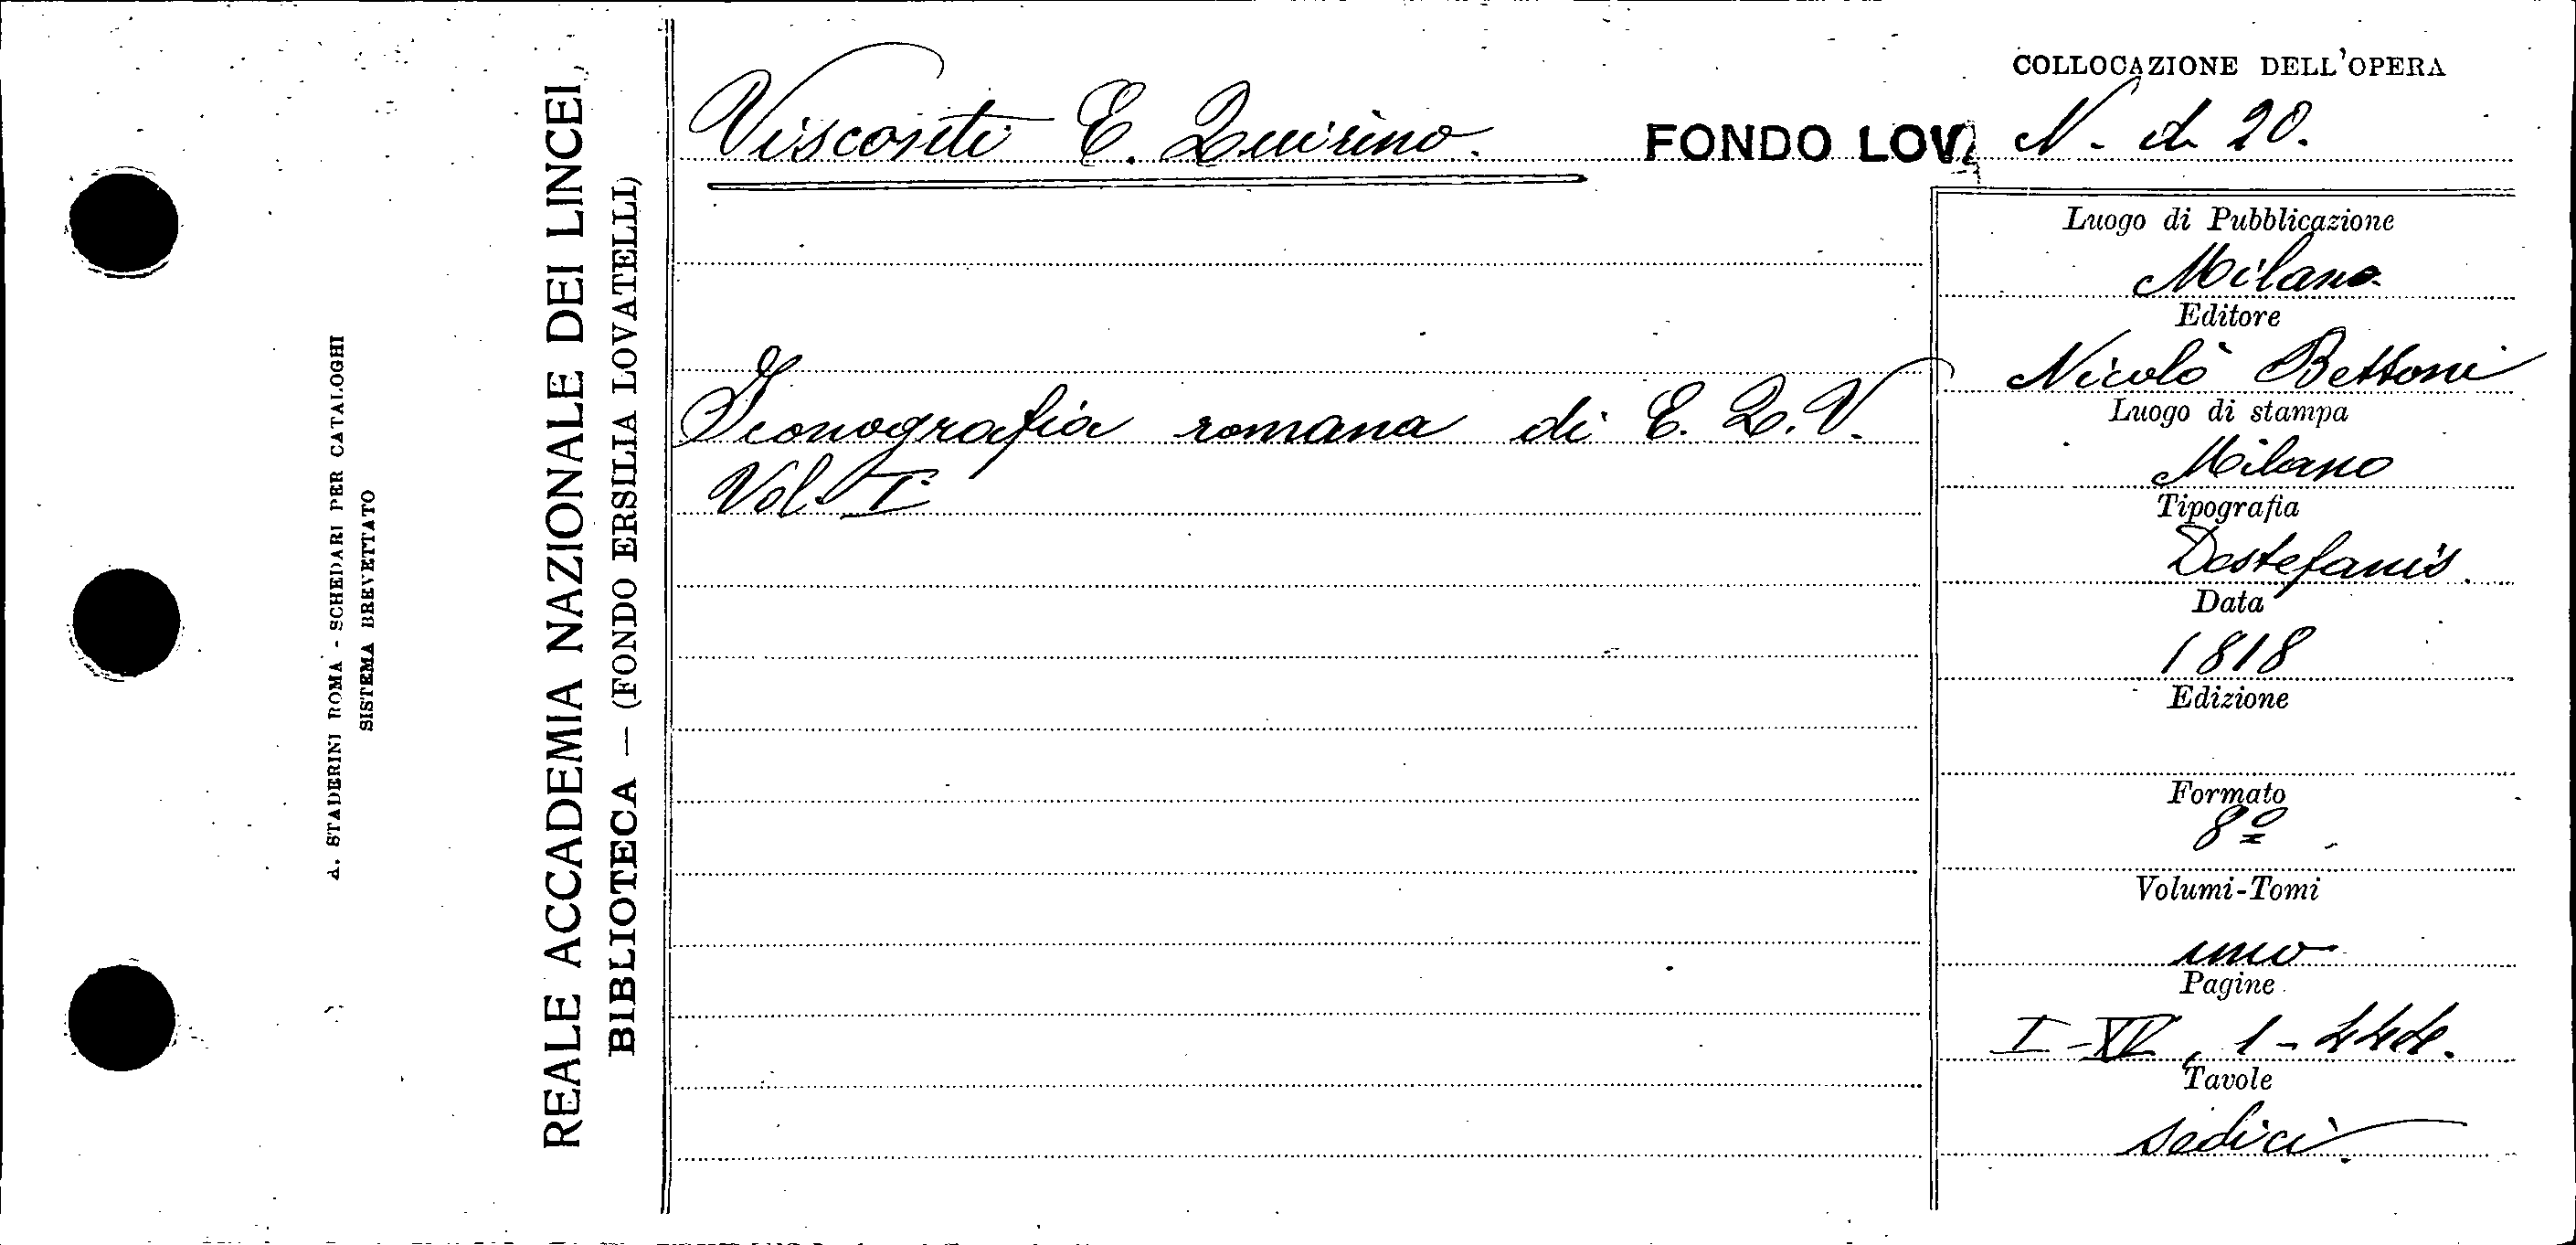 A. STADERINI ROMA - SCHEDARI PER CATALOGHI
SISTEMA BREVETTATO
REALE ACCADEMIA NAZIONALE DEI LINCEI
BIBLIOTECA — (FONDO ERSILIA LOVATELLI)
Visconti E. Quirino.
FONDO LOV
Iconografia romana di E. Q. V.
Vol. I
COLLOCAZIONE DELL'OPERA
N. d 20.
Luogo di Pubblicazione
Milano
Editore
Nicolò Bettoni
Luogo di stampa
Milano
Tipografia
Destefanis.
Data
1818
Edizione
Formato
8º
Volumi-Tomi
uno
Pagine
I-XV, 1-444.
Tavole
sedici.